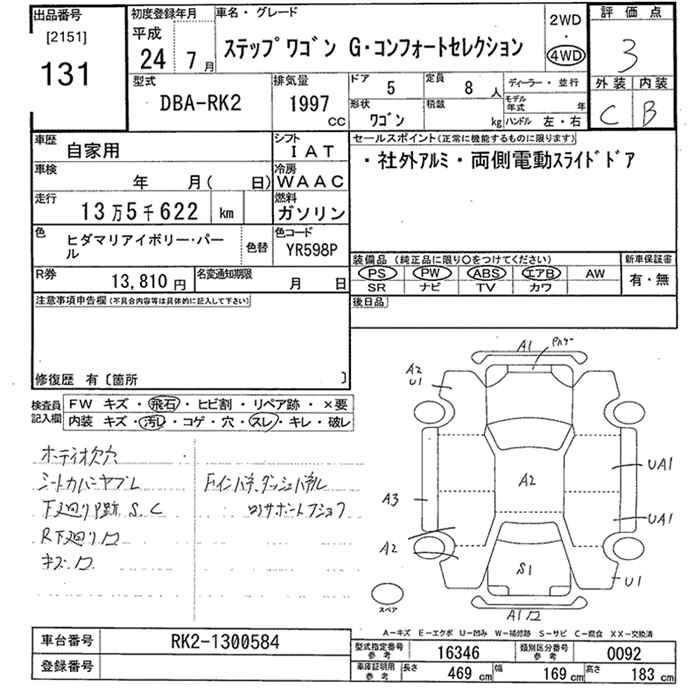 出品番号
[2151]
131
初度登録年月
平成
24年7月
車名・グレード
ステップワゴン G・コンフォートセレクション
2WD
・
4WD
評価点
3
外装 内装
C B
型式
DBA-RK2
排気量
1997
CC
ドア
5
定員
8人
形状
ワゴン
積載
kg
ディーラー・並行
モデル年式 年
ハンドル 左・右
車歴
自家用
シフト
IAT
車検
年 月( 日)
冷房
WAAC
走行
13万5千622 km
燃料
ガソリン
色
ヒダマリアイボリー・パール
色替
色コード
YR598P
R券
13,810円
名変通知期限
月 日
セールスポイント(正常に機能するものに限ります)
・社外アルミ・両側電動スライドドア
装備品 (純正品に限り○をつけてください)
PS PW ABS エアB AW
SR ナビ TV カワ
新車保証書
有・無
後日品
注意事項申告欄(不具合内容等は具体的に記入して下さい)
修復歴 有〔箇所 〕
検査員記入欄
FW キズ・飛石・ヒビ割・リペア跡・×要
内装 キズ・汚レ・コゲ・穴・スレ・キレ・破レ
シートカバーヤブレ
下廻りP跡 S.C
R下廻り
A1
A2
U1
A2
UA1
UA1
A3
A2
S1
U1
A1
スペア
A-キズ E-エクボ U-凹み W-補修跡 S-サビ C-腐食 XX-交換済
車台番号
RK2-1300584
登録番号
型式指定番号 参考
16346
類別区分番号 参考
0092
車庫証明用 参考
長さ 469 cm
幅 169 cm
高さ 183 cm